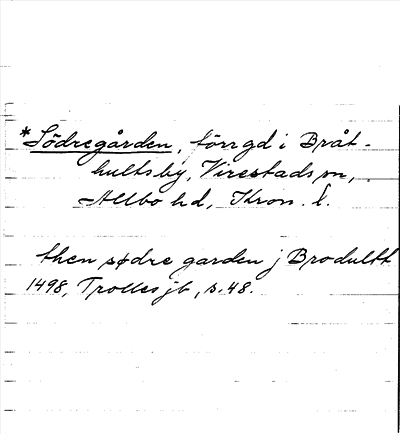 *Södregården, förrgd i Bråt-
hultsby, Virestads sn,
Allbo hd, Kron. l.
then sødre garden j Brodultt
1498, Trolles jb, s. 48.